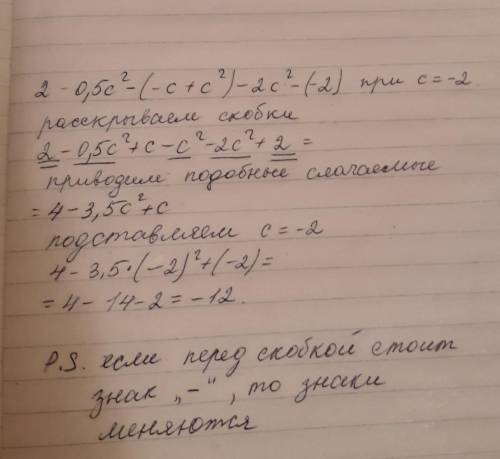 2 - 0,5c² - (-c + c²) - 2c² - (-2) при c = -2
расскрываем скобки
2 - 0,5c² + c - c² - 2c² + 2 =
приводим подобные слагаемые
= 4 - 3,5c² + c
подставляем c = -2
4 - 3,5 · (-2)² + (-2) =
= 4 - 14 - 2 = -12.
P.S. если перед скобкой стоит
знак „-“, то знаки
меняются